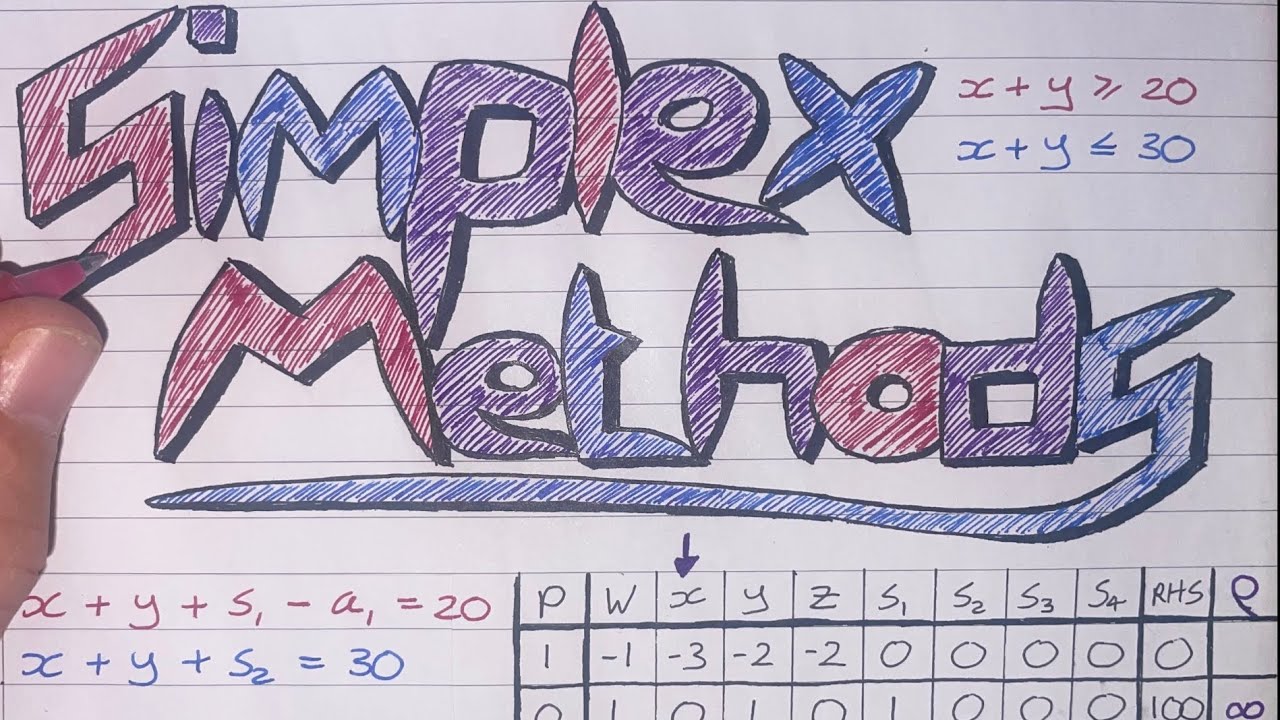 Simplex
x + y ≥ 20
x + y ≤ 30
Methods
x + y + S₁ - a₁ = 20
x + y + S₂ = 30
P W x y z S₁ S₂ S₃ S₄ RHS ρ
1 -1 -3 -2 -2 0 0 0 0 0
0 1 0 1 0 1 0 0 0 100 ∞